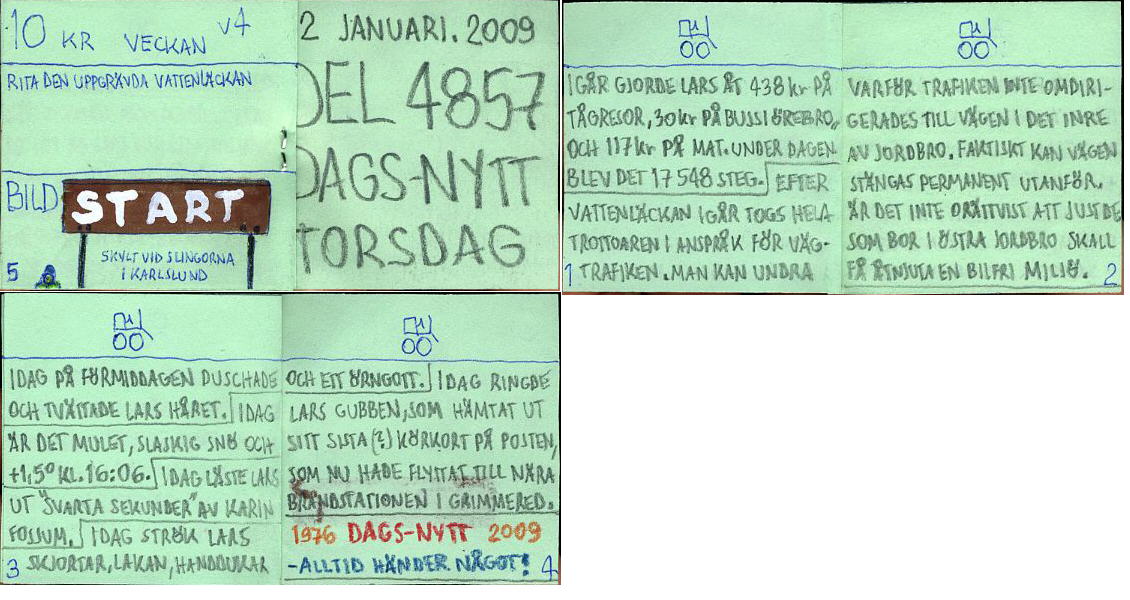 10 KR VECKAN V4
RITA DEN UPPGRÄVDA VATTENLÄCKAN
BILD
START
SKYLT VID SLINGORNA
I KARLSLUND
5
2 JANUARI. 2009
DEL 4857
DAGS-NYTT
TORSDAG
IGÅR GJORDE LARS ÅT 438 kr PÅ
TÅGRESOR, 30 kr PÅ BUSS I ÖREBRO,
OCH 117 kr PÅ MAT. UNDER DAGEN
BLEV DET 17 548 STEG. EFTER
VATTENLÄCKAN IGÅR TOGS HELA
TROTTOAREN I ANSPRÅK FÖR VÄG-
TRAFIKEN. MAN KAN UNDRA
1
VARFÖR TRAFIKEN INTE OMDIRI-
GERADES TILL VÄGEN I DET INRE
AV JORDBRO. FAKTISKT KAN VÄGEN
STÄNGAS PERMANENT UTANFÖR.
ÄR DET INTE ORÄTTVIST ATT JUST DE
SOM BOR I ÖSTRA JORDBRO SKALL
FÅ ÅTNJUTA EN BILFRI MILJÖ.
2
IDAG PÅ FÖRMIDDAGEN DUSCHADE
OCH TVÄTTADE LARS HÅRET. IDAG
ÄR DET MULET, SLASKIG SNÖ OCH
+1,5° KL. 16:06. IDAG LÄSTE LARS
UT "SVARTA SEKUNDER" AV KARIN
FOSSUM. IDAG STRÖK LARS
SKJORTAR, LAKAN, HANDDUKAR
3
OCH ETT ÖRNGOTT. IDAG RINGDE
LARS GUBBEN, SOM HÄMTAT UT
SITT SISTA (?) KÖRKORT PÅ POSTEN,
SOM NU HADE FLYTTAT TILL NÄRA
BRANDSTATIONEN I GRIMMERED.
1976 DAGS-NYTT 2009
-ALLTID HÄNDER NÅGOT!
4